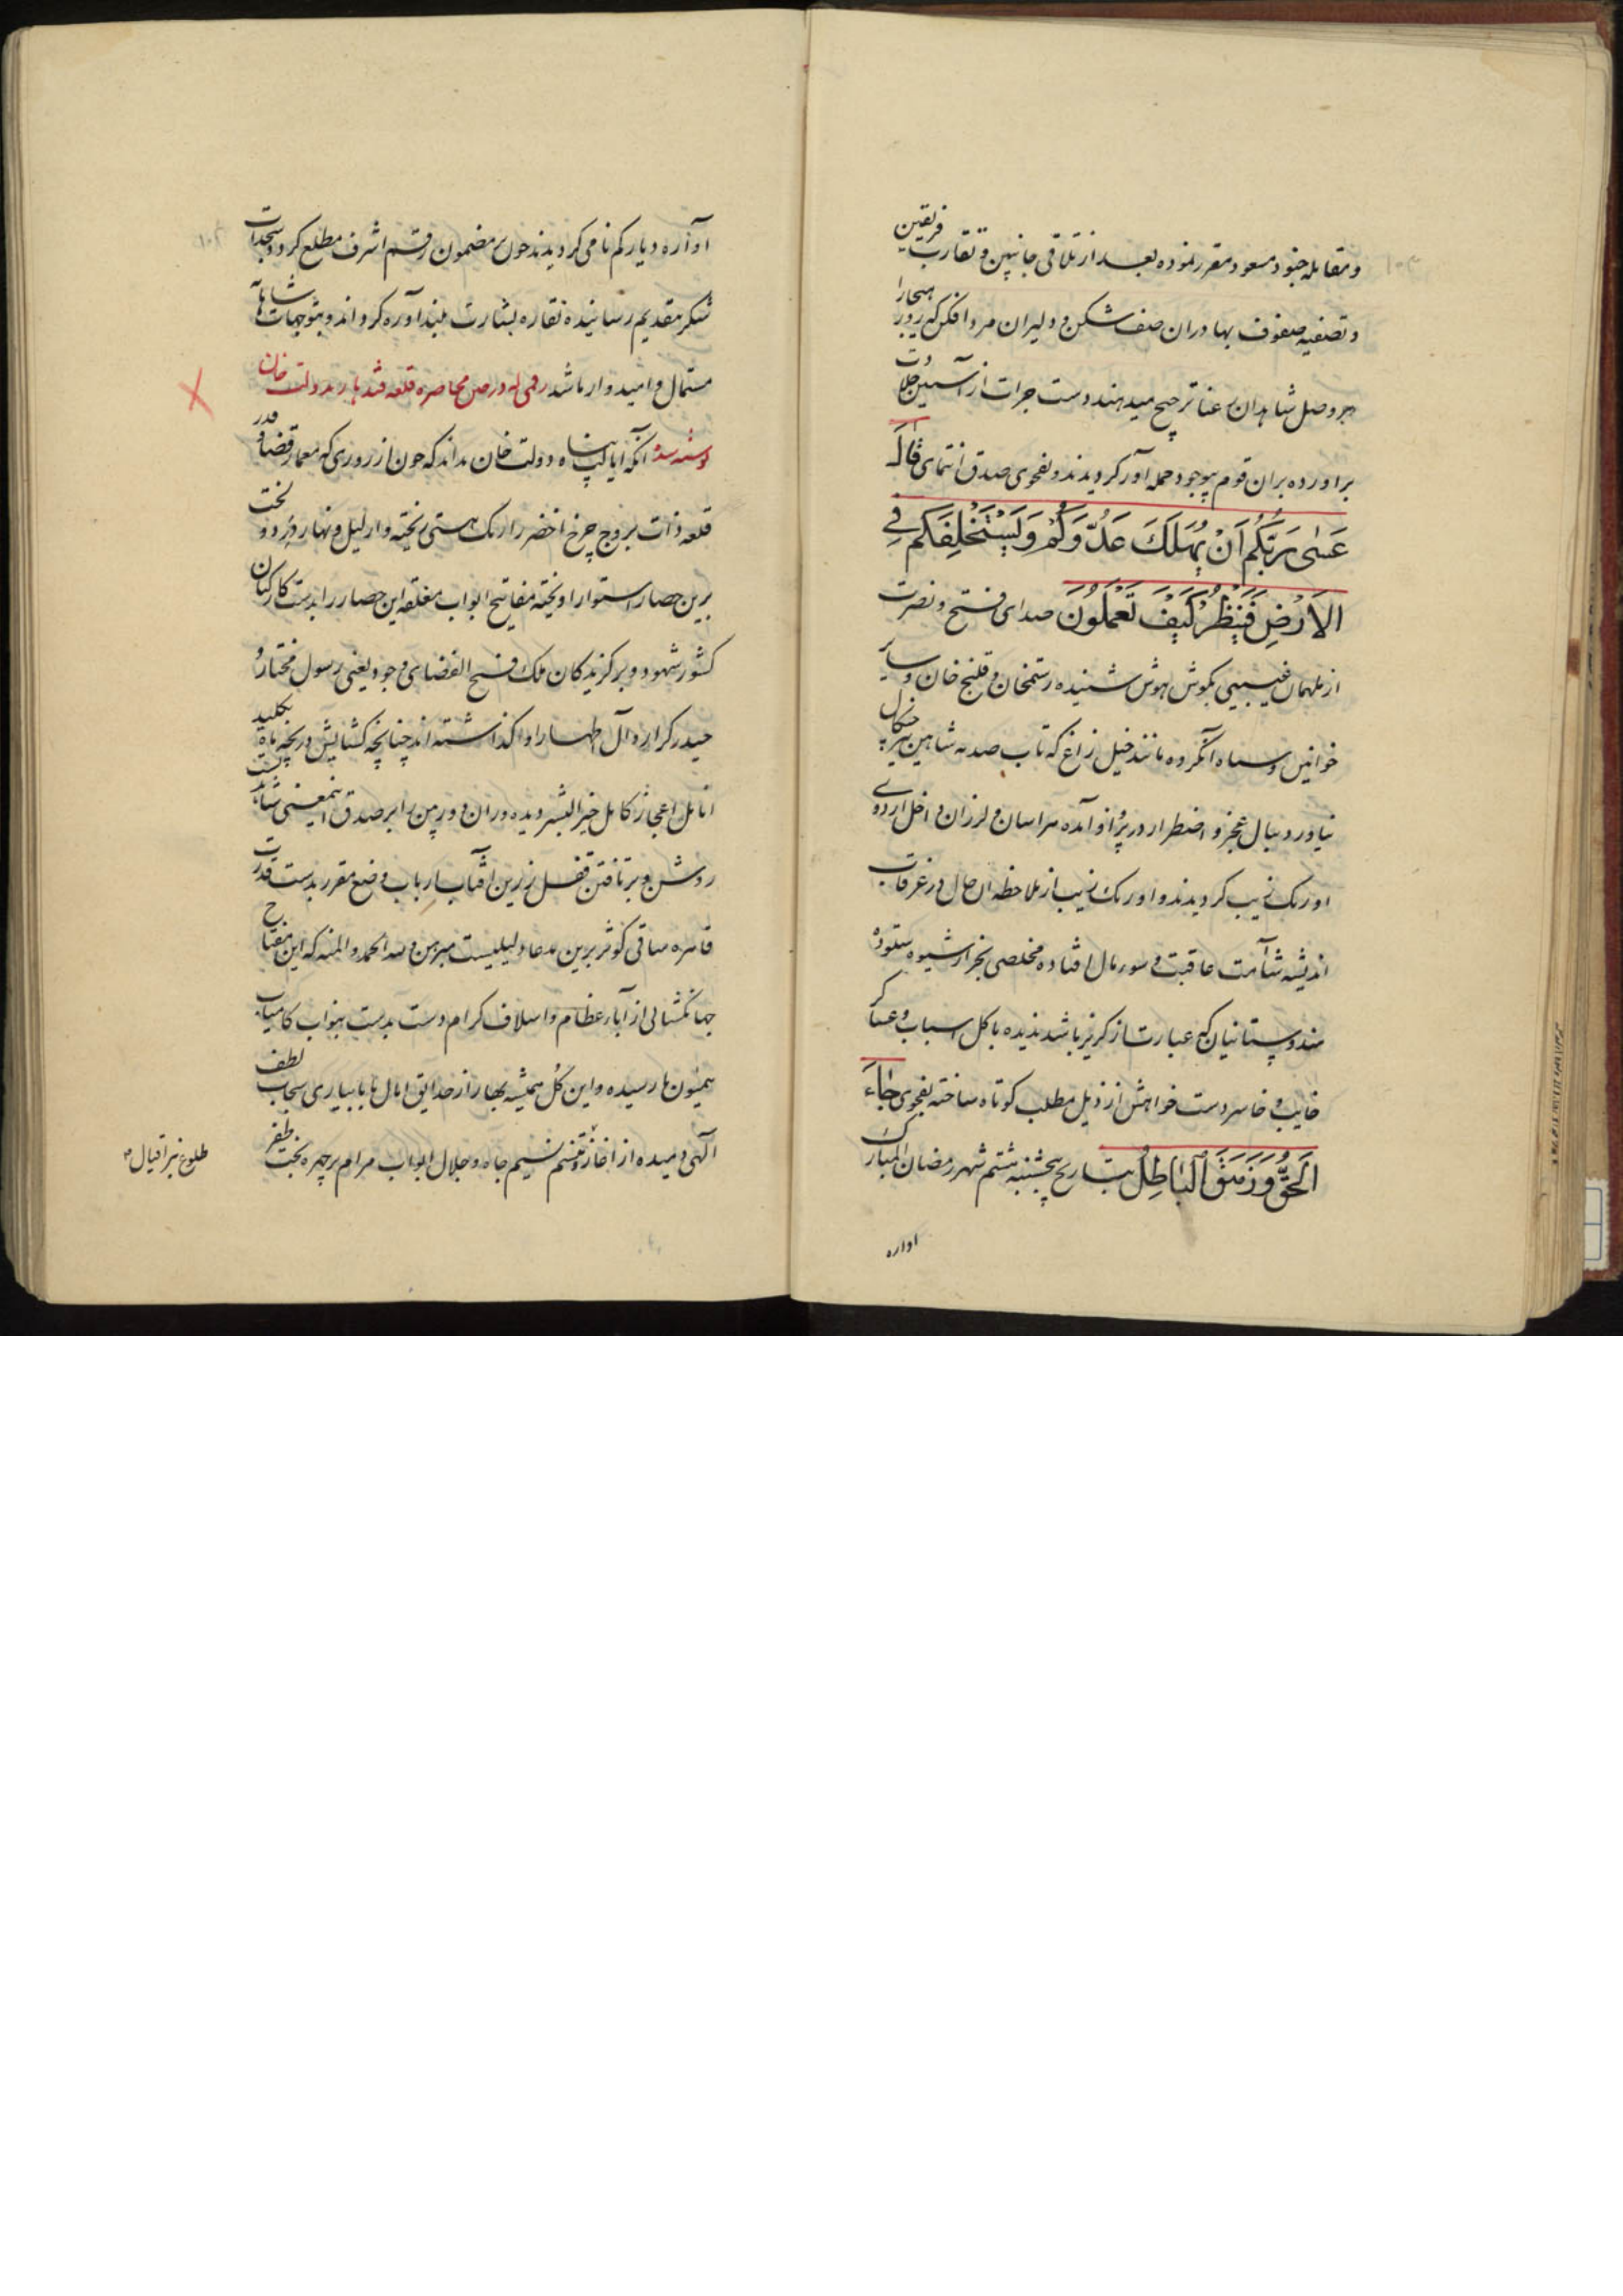 و مقابله جنود مسعود مقرر نموده بعد از تلاقی جانبین و تقارب فریقین
و تصفیه صفوف بهادران صف شکن و دلیران مرد افکن که روز هیجارا
بر وصل شاهدان رعنا ترجیح میدهند دست جرات از آستین جلادت
براورده بران قوم بیوجود حمله آور کردیدند و بفحوی صدق انتمای قال
عَسٰی رَبُّکُم اَنْ یُهْلِکَ عَدُوَّکُمْ وَ یَسْتَخْلِفَکُم فِی
الاَرْضِ فَیَنْظُرَ کَیْفَ تَعْمَلُونَ صدای فتح و نصرت
از ملهمان غیبی بکوش هوش شنیده رستمخان و قلیج خان و سایر
خوانین و سپاه آنکروه مانند خیل زاغ که تاب صدمه شاهین تیز چنکال
نیاورد ببال عجز و اضطرار در پرواز آمده هراسان و لرزان داخل اردوی
اورنک زیب کردیدند و اورنک زیب از ملاحظه ان حال در غرقاب
اندیشه شآمت عاقبت و سوء مآل افتاده مخلصی بجز از شیوه ستوده
هندوستانیان که عبارت از کریز باشد ندیده با کل اسباب و عساکر
خایب و خاسر دست خواهش از ذیل مطلب کوتاه ساخته بفحوی جَاءَ
اَلحَقُّ وَ زَهَقَ اَلبَاطِلُ بتاریخ پنجشنبه هشتم شهر رمضان المبارک
اواره
آواره دیار کم نامی کردیدند چون بر مضمون رقم اشرف مطلع کردد سجدات
شکر بتقدیم رسانیده نقاره بشارت بلند آوازه کرداند و بتوجهات شاهانه
مستمال و امیدوار باشد رقمی که در حین محاصره قلعه قندهار بدولت خان
نوشته شد آنکه ایالت پناه دولت خان بداند که چون از روزی که معمار قضا و قدر
قلعه ذات بروج چرخ اخضر را رنک هستی ریخته و از لیل و نهار دو لخت
برین حصار استوار اویخته مفاتیح ابواب مغلقه این حصار را بدست کارکنان
کشور شهود و برکزیدکان ملک فسیح الفضای وجود یعنی رسول مختار و
حیدر کرار و آل اطهار واکذاشته اند چنانچه کشایش دریچه ماه بکلید
انامل اعجاز کامل خیر البشر دیده دوران دوربین را بر صدق اینمعنی شاهدیست
روشن و برتافتن قفل زرین آفتاب ارباب وضع مقرر بدست قدرت
قاهره ساقی کوثر برین مدعا دلیلیست مبرهن و لله الحمد و المنه که این مفتاح
جهانکشائی از آباء عظام و اسلاف کرام دست بدست بنواب کامیاب
همیون ما رسیده و این کل همیشه بهار از حدایق امال ما بابیاری سحاب لطف
آلهی دمیده از اغاز تنسم نسیم جاه و جلال ابواب مرام بر چهره بخت ظفر
طلوع نیر اقبال